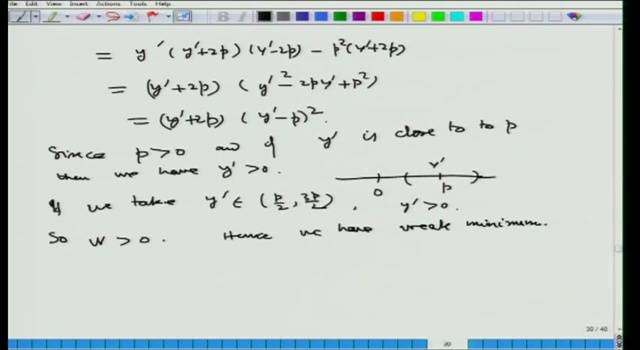 Edit View Insert Actions Tools Help
= y' (y'+2p) (y'-2p) - p²(y'+2p)
= (y'+2p) (y'² - 2py' + p²)
= (y'+2p) (y'-p)².
Since p>0 and if y' is close to to p
then we have y'>0.
y'
0 p
If we take y' ∈ (p/2, 3p/2), y'>0.
So W > 0. Hence we have weak minimum.
30 / 40
30